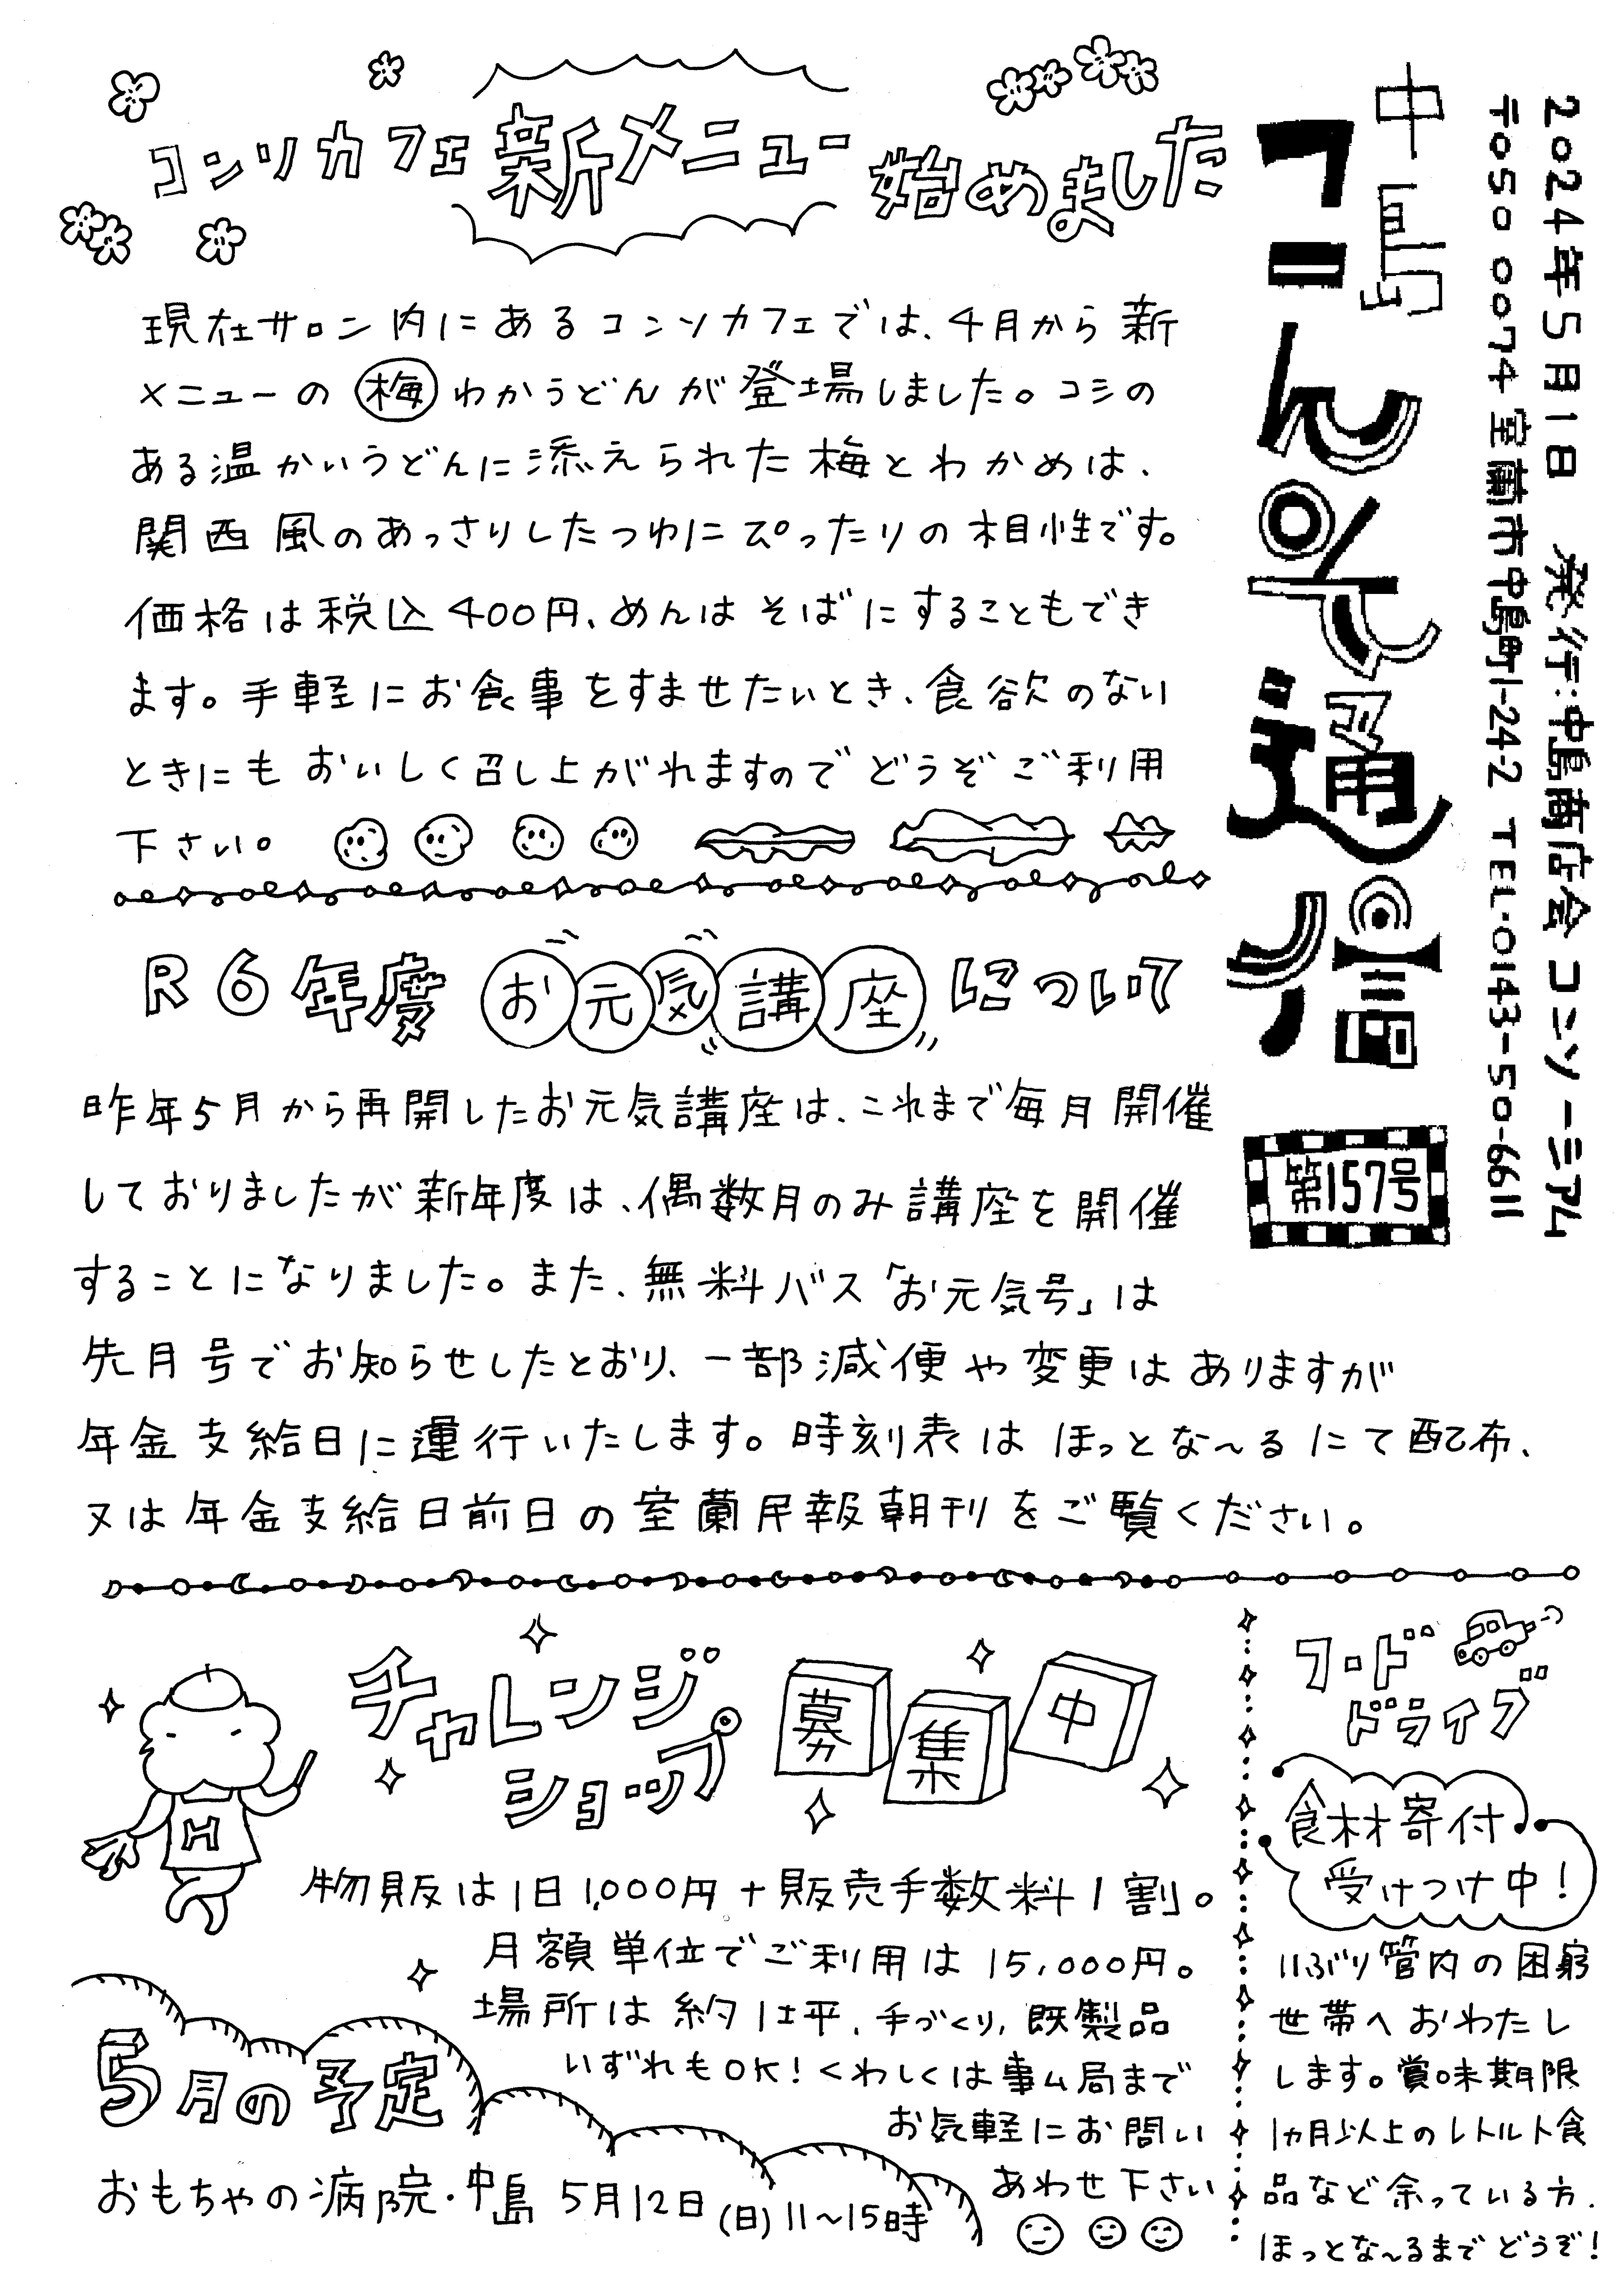 2024年5月1日 発行:中島商店会コンソーシアム
〒050 0074 室蘭市中島町1-24-2 TEL・0143-50-6611
中島
コンソ通信
第157号
コンソカフェ新メニュー始めました
現在サロン内にあるコンソカフェでは、4月から新
メニューの梅わかうどんが登場しました。コシの
ある温かいうどんに添えられた梅とわかめは、
関西風のあっさりしたつゆにぴったりの相性です。
価格は税込400円、めんはそばにすることもでき
ます。手軽にお食事をすませたいとき、食欲のない
ときにもおいしく召し上がれますのでどうぞご利用
下さい。
R6年度 お元気講座について
昨年5月から再開したお元気講座は、これまで毎月開催
しておりましたが新年度は、偶数月のみ講座を開催
することになりました。また、無料バス「お元気号」は
先月号でお知らせしたとおり、一部減便や変更はありますが
年金支給日に運行いたします。時刻表はほっとな〜るにて配布、
又は年金支給日前日の室蘭民報朝刊をご覧ください。
チャレンジ
ショップ
募集中
H
物販は1日1,000円+販売手数料1割。
月額単位でご利用は15,000円。
場所は約1坪、手づくり、既製品
いずれもOK!くわしくは事ム局まで
お気軽にお問い
あわせ下さい
5月の予定
おもちゃの病院・中島 5月12日(日)11〜15時
フードドライブ
食材寄付
受けつけ中!
いぶり管内の困窮
世帯へおわたし
します。賞味期限
1カ月以上のレトルト食
品など余っている方、
ほっとな〜るまでどうぞ!